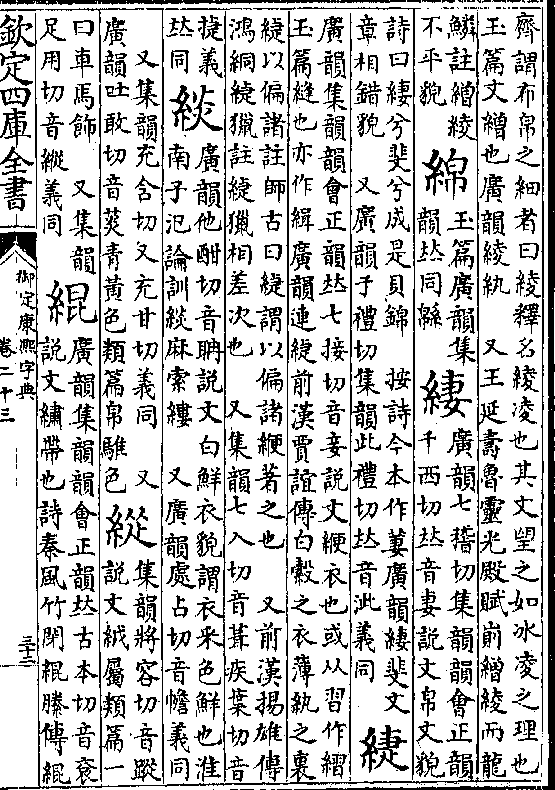 齊謂布帛之細者曰綾釋名綾凌也其文望之如冰凌之理也
玉篇文繒也廣韻綾紈 又王延壽魯靈光殿賦崱繒綾而龍
鱗註繒綾
不平貌
綿
玉篇廣韻集
韻𠀤同緜
緀
廣韻七稽切集韻韻會正韻
千西切𠀤音妻說文帛文貌
詩曰緀兮斐兮成是貝錦 按詩今本作萋廣韻緀斐文
章相錯貌 又廣韻子禮切集韻此禮切𠀤音泚義同
緁
廣韻集韻韻會正韻𠀤七接切音妾說文緶衣也或从習作
玉篇縫也亦作緝廣韻連緁前漢賈誼傳白縠之衣薄紈之裏
緁以偏諸註師古曰緁謂以偏諸緶著之也 又前漢揚雄傳
鴻絧緁獵註緁獵相差次也 又集韻七入切音葺疾葉切音
捷義
𠀤同
緂
廣韻他酣切音聃說文白鮮衣貌謂衣采色鮮也淮
南子氾論訓緂麻索縷 又廣韻處占切音幨義同
又集韻充含切又充甘切義同 又
廣韻吐敢切音菼青黃色類篇帛騅色
緃
集韻將容切音蹤
說文絨屬類篇一
曰車馬飾 又集韻
足用切音縱義同
緄
廣韻集韻韻會正韻𠀤古本切音袞
說文繡帶也詩秦風竹閉緄縢傳緄
欽定四庫全書
御定康熙字典
卷二十三
三十三